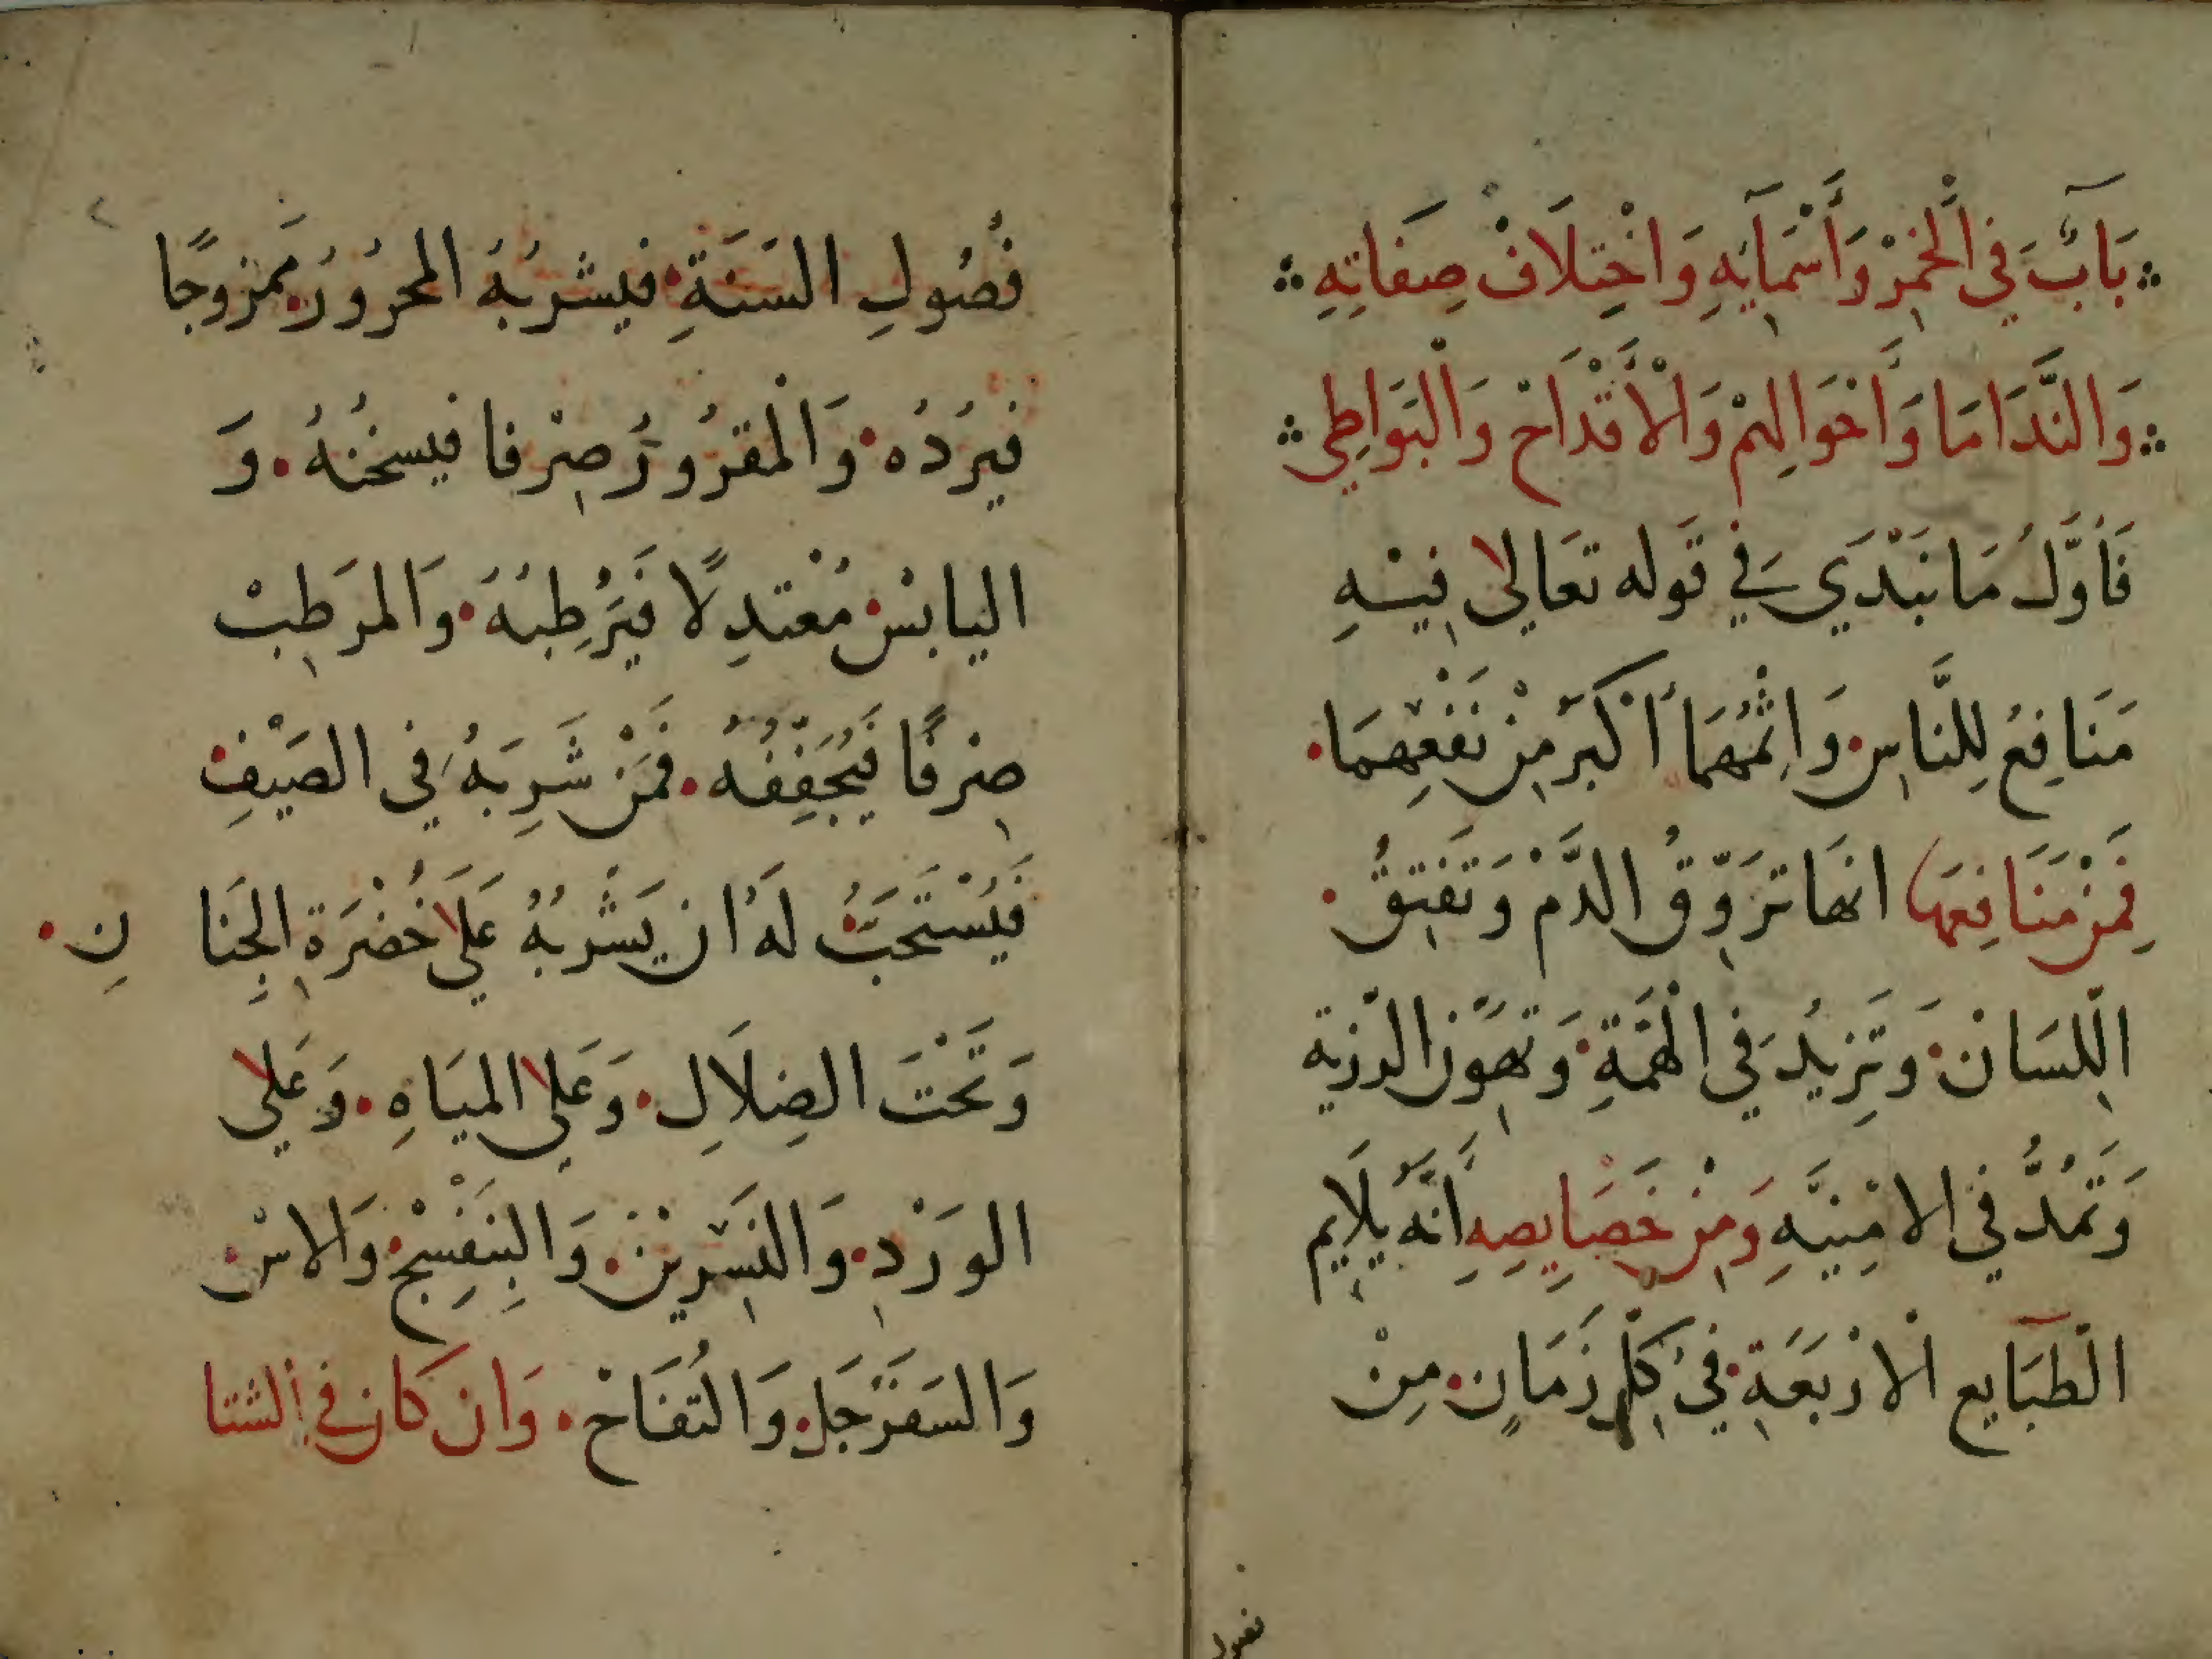 بَابٌ فِي الْخَمْرْ وَأَسْمَآيِهِ وَاخْتِلَافْ صِفَاتِهِ
وَالنَّدَامَا وَأَحْوَالِهِمْ وَالْأَقْدَاحْ وَالْبَوَاطِي
فَأَوَّلُ مَا نَبْتَدِي فِي قَوله تعَالى فِيْهِ
مَنَافِعُ لِلنَّاسِ وَاِثْمُهُمَا أَكْبَر مِنْ نَفْعِهِمَا
فَمِنْ مَنَافِعِهَا انهَا تَرَوِّقُ الدَّمْ وَتَفْتِقُ
اللِّسَانْ وَتَزِيدُ فِي الْهِمَّةِ وَتُهَوِّن الرزية
وَتَمُدُّ فِي الامْنِيَّهِ وَمِنْ خَصَايِصِهِ أَنَّهُ يُلَايِم
الطَبَايِع الْارْبَعَةِ فِي كُلِّ زَمَانٍ مِنْ
فصول
فُصُولِ السَنَةِ فيشربُهُ المحرُورُ مَمزوجًا
فيبرَدُه وَالْمقرُورُ صِرْفا فيسخنُهُ وَ
اليابسْ مُعْتدِلًا فَيُرَطِبُهُ وَالمرَطِبْ
صِرْفًا فَيُجَفِفُهُ فَمَنْ شَرِبَهُ فِي الصَيْفِ
فَيُسْتَحَبُّ لَهُ ان يَشْرَبُهُ عَلَى خُضْرَةِ الْجِنَانِ
وَتَحْتَ الضِلَالِ وَعَلى المِيَاهِ وَعَلى
الوَرْدِ وَالنَسْرِيْنْ وَالبِنَفْسِجْ وَالاسْ
وَالسَفَرْجَل وَالتُفَاحْ وَان كَان فِي الشتا